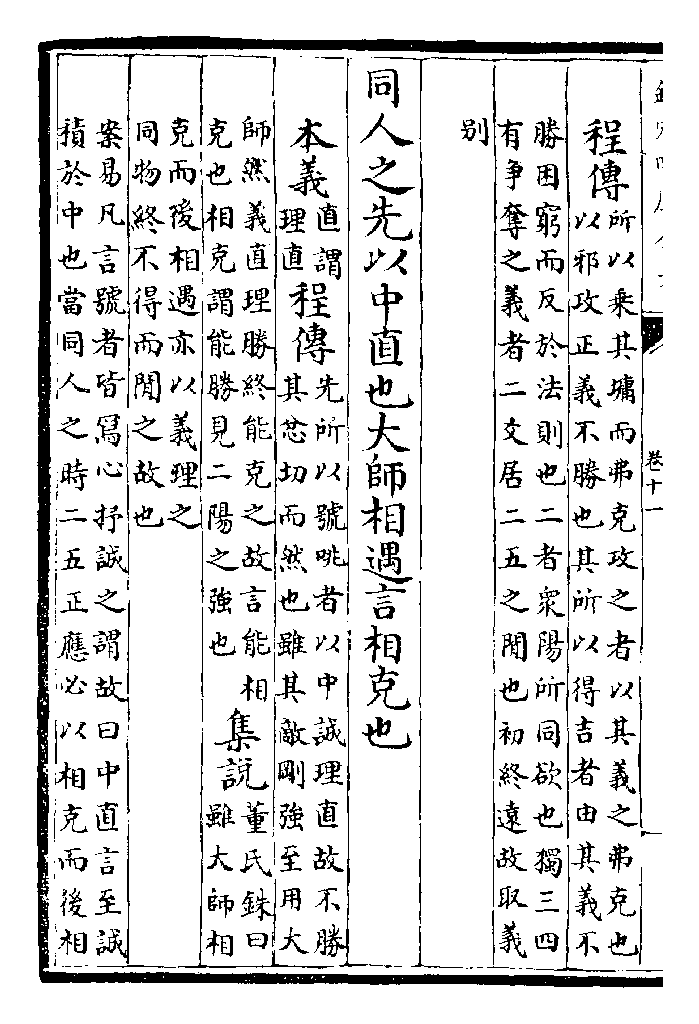 卷十一
程傳
所以乘其墉而弗克攻之者以其義之弗克也
以邪攻正義不勝也其所以得吉者由其義不
勝困窮而反於法則也二者衆陽所同欲也獨三四
有争奪之義者二爻居二五之閒也初終遠故取義
别
同人之先以中直也大師相遇言相克也
本義
直謂
理直
程傳
先所以號咷者以中誠理直故不勝
其忿切而然也雖其敵剛強至用大
師然義直理勝終能克之故言能相
克也相克謂能勝見二陽之強也
集說
董氏銖曰
雖大師相
克而後相遇亦以義理之
同物終不得而閒之故也
案易凡言號者皆冩心抒誠之謂故曰中直言至誠
積於中也當同人之時二五正應必以相克而後相